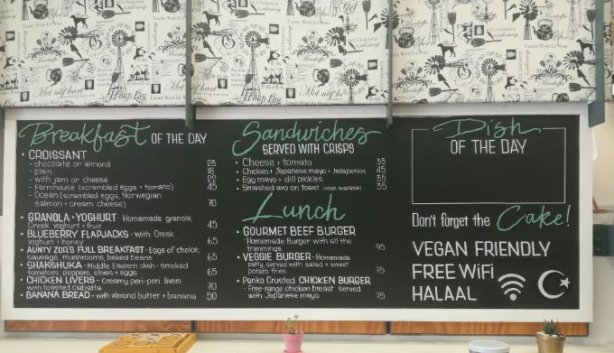 Breakfast OF THE DAY
• CROISSANT
- chocolate or almond 23
- plain 18
- with jam or cheese 23
- Farmhouse (scrambled eggs + tomato) 45
- Ocean (scrambled eggs, Norwegian
Salmon + cream cheese) 70
• GRANOLA + YOGHURT - Homemade granola,
Greek yoghurt + fruit 45
• BLUEBERRY FLAPJACKS - with Greek
yoghurt + honey 65
• AUNTY ZOR'S FULL BREAKFAST - Eggs of choice,
sausage, mushrooms, baked beans 65
• SHAKSHUKA - Middle Eastern dish - smoked
tomatoes, peppers, olives + eggs 65
• CHICKEN LIVERS - Creamy peri-peri livers
with toasted ciabatta 70
• BANANA BREAD - with almond butter + banana 50
Sandwiches
SERVED WITH CRISPS
• Cheese + tomato 35
• Chicken + Japanese mayo + Jalapenos 45
• Egg mayo + dill pickles 35
• Smashed avo on toast (when available) 35
Lunch
• GOURMET BEEF BURGER
- Homemade Burger with all the
trimmings 95
• VEGGIE BURGER - Homemade
patty, served with salad + sweet
potato fries 75
• Panko Crusted CHICKEN BURGER
- Free range chicken breast served
with Japanese mayo 75
Dish
OF THE DAY
Don't forget the Cake!
VEGAN FRIENDLY
FREE WiFi
HALAAL